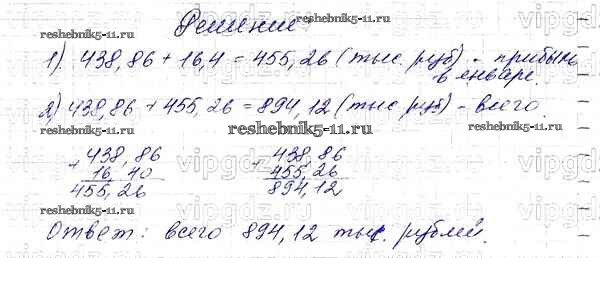 Решение
reshebnik5-11.ru reshebnik5-11.ru
1) 438,86 + 16,4 = 455,26 (тыс. руб) - прибыль
в январе.
2) 438,86 + 455,26 = 894,12 (тыс руб) - всего.
reshebnik5-11.ru
+ 438,86 + 438,86
16,40 455,26
455,26 894,12
reshebnik5-11.ru
Ответ: всего 894,12 тыс. рублей.
vipgdz.ru